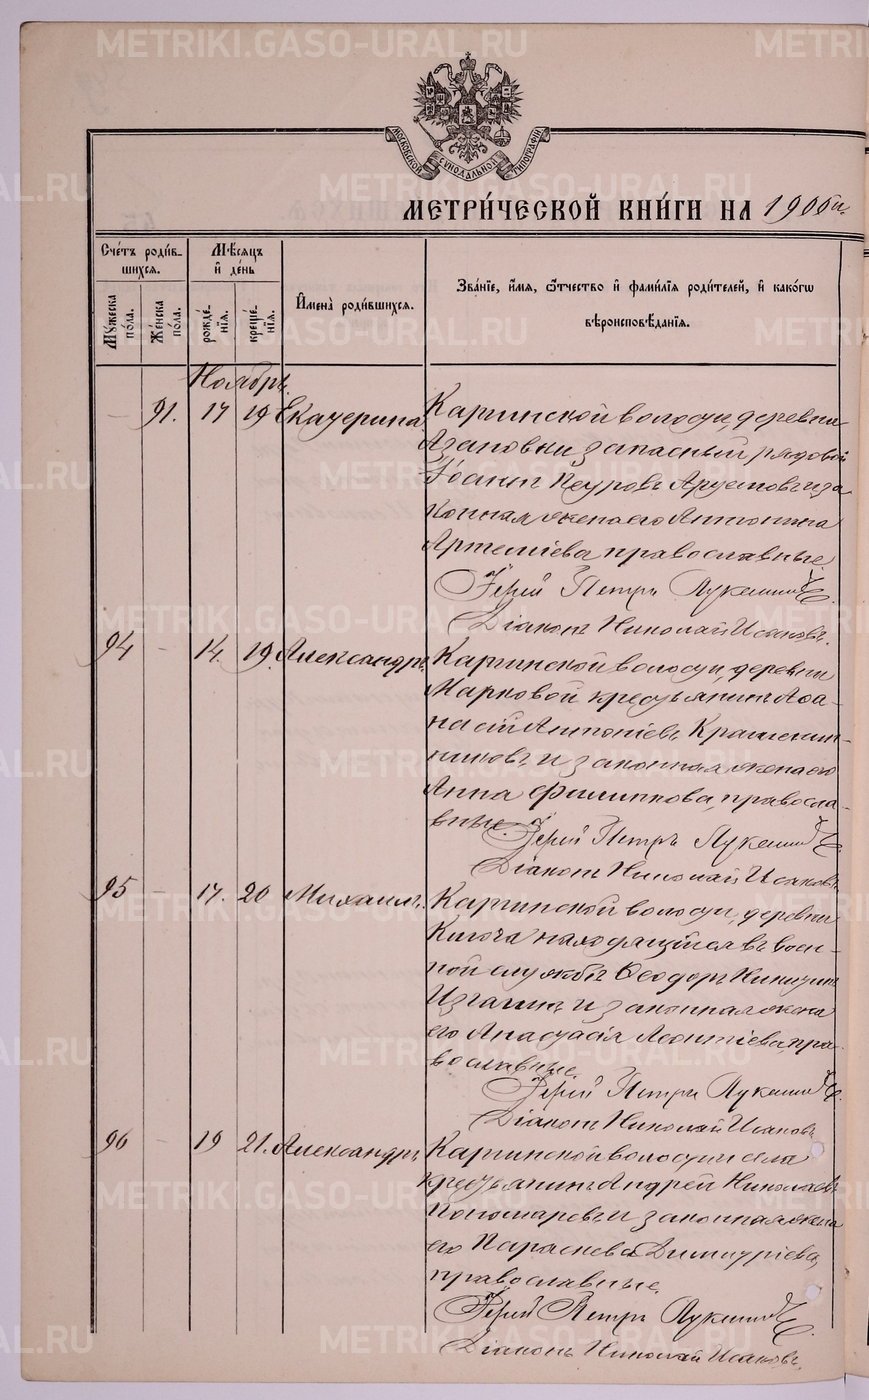 METRIKI.GASO-URAL.RU
МОСКОВСКОЙ СѴНОДАЛЬНОЙ ТИПОГРАФІИ
МЕТРИ́ЧЕСКОЙ КНИ́ГИ НА 1906 г.
Сче́тъ роди́в-
шихся.
Мѣ́сяцъ
и҆ де́нь
И҆мена̀ роди́вшихся.
Зва́нїе, и҆́мя, ѻ҆́тчество и҆ фами́лїя роди́телей, и҆ како́гѡ
вѣроисповѣ́данїя.
Му́жеска по́ла.
Же́нска по́ла.
рожде́нїя.
креще́нїя.
Ноябрь.
91. 17 19 Екатерина
Каргинской волости, деревни
запасный рядовой
Іоаннъ Петровъ и за
конная жена его Антонина
Артеміева православные.
Іерей Петръ
Діаконъ Николай Исаковъ.
94 - 14. 19. Александръ.
Каргинской волости, деревни
Марковой крестьянинъ Аѳа-
насій Антоніевъ Крашенин-
никовъ и законная жена его
Анна Филиппова, правосла-
вные. Іерей Петръ
Діаконъ Николай Исаковъ.
95 - 17. 20 Михаилъ.
Каргинской волости, деревни
находящійся въ воен-
ной службѣ Ѳеодоръ Никитинъ
и законная жена
его Анастасія Леонтіева, пра-
вославные.
Іерей Петръ
Діаконъ Николай Исаковъ
96 - 19 21. Александръ
Каргинской волости села
крестьянинъ Андрей Николаевъ
Пономаревъ и законная жена
его Параскева Димитріева,
православные.
Іерей Петръ
Діаконъ Николай Исаковъ.